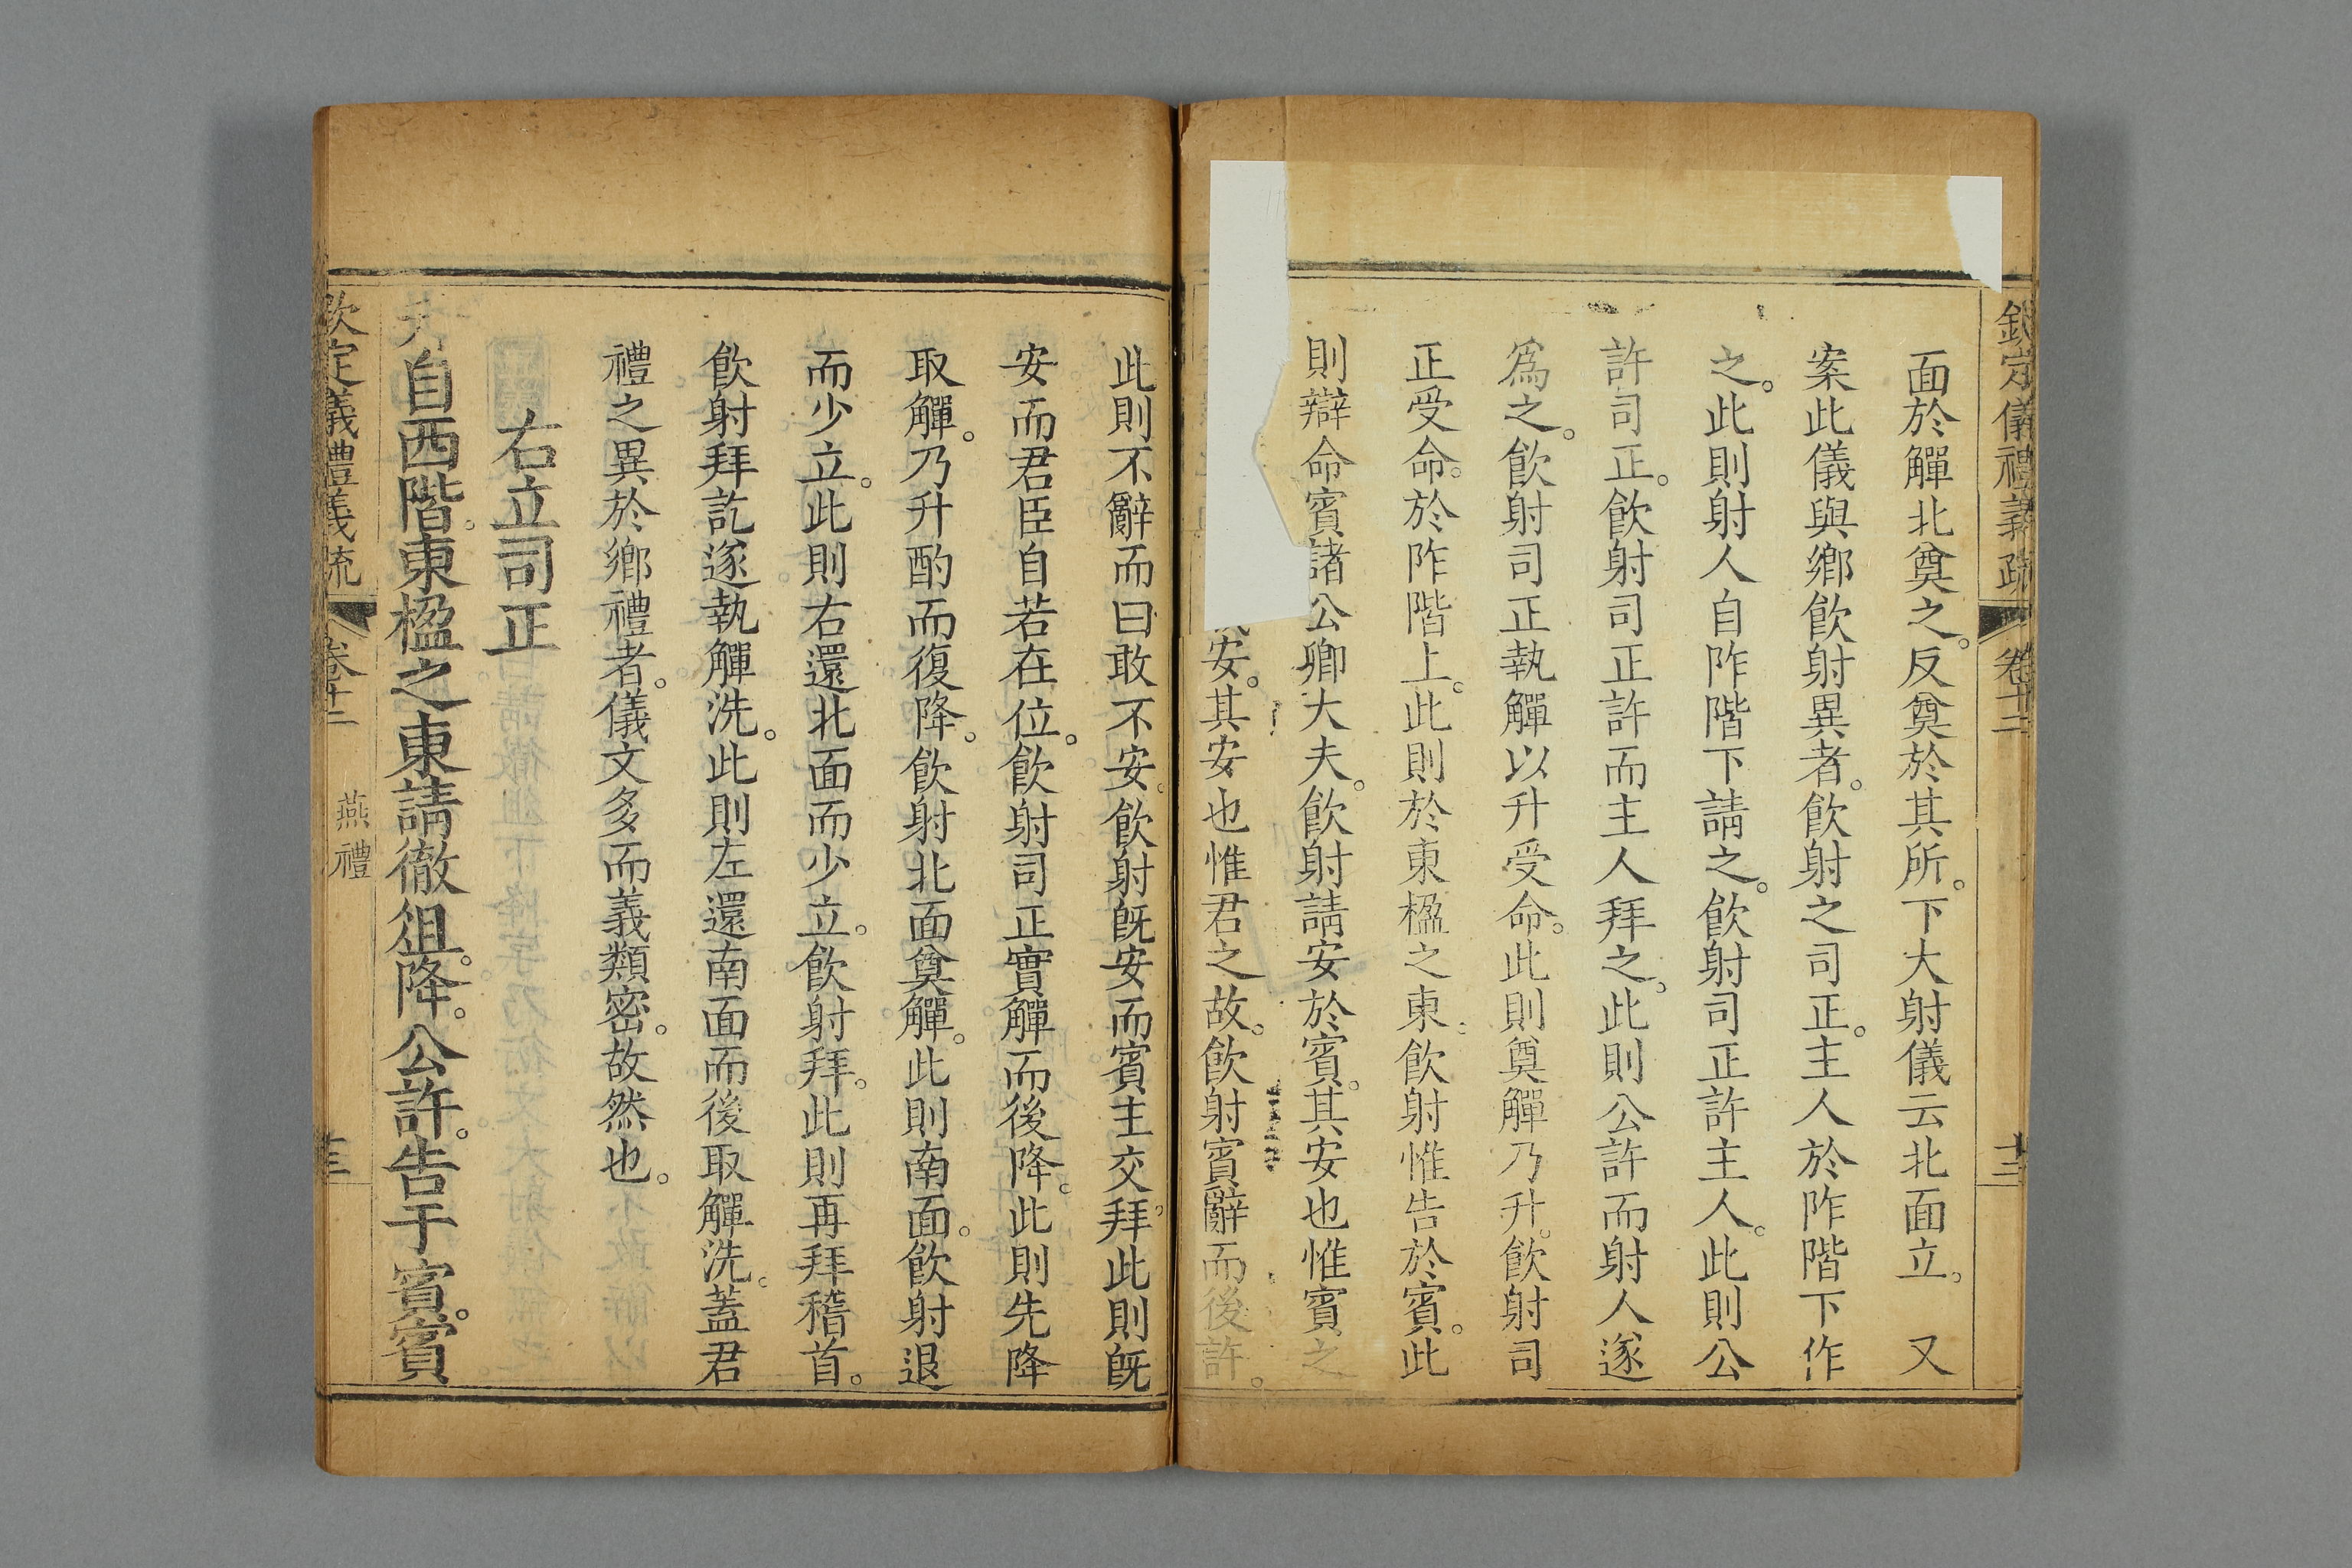 欽定儀禮義疏 卷十二 十三
面於觶北奠之。反奠於其所。下大射儀云北面立。 又
案此儀與鄉飮射異者。飮射之司正。主人於阼階下作
之。此則射人自阼階下請之。飮射司正許主人。此則公
許司正。飮射司正許而主人拜之。此則公許而射人遂
爲之。飮射司正執觶以升受命。此則奠觶乃升。飮射司
正受命。於阼階上。此則於東楹之東。飮射惟告於賓。此
則辯命賓諸公卿大夫。飮射請安於賓。其安也惟賓之
安。其安也惟君之故。飮射賓辭而後許。
此則不辭而曰敢不安。飮射旣安而賓主交拜。此則旣
安而君臣自若在位。飮射司正實觶而後降。此則先降
取觶。乃升酌而復降。飮射北面奠觶。此則南面。飮射退
而少立。此則右還北面而少立。飮射拜。此則再拜稽首。
飮射拜訖遂執觶洗。此則左還南面而後取觶洗。蓋君
禮之異於鄉禮者。儀文多而義類密。故然也。
右立司正
升自西階。東楹之東請徹俎。降。公許。告于賓。賓
欽定儀禮義疏 卷十二 燕禮 十三